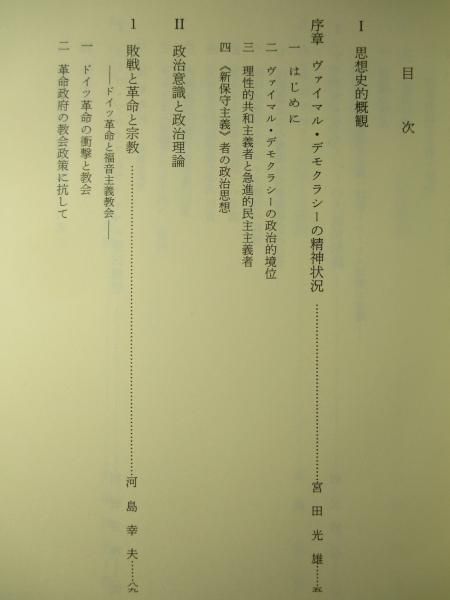 目次
Ⅰ 思想史的概観
序章 ヴァイマル・デモクラシーの精神状況……宮田光雄……五
一 はじめに
二 ヴァイマル・デモクラシーの政治的境位
三 理性的共和主義者と急進的民主主義者
四 《新保守主義》者の政治思想
Ⅱ 政治意識と政治理論
1 敗戦と革命と宗教……河島幸夫……八九
――ドイツ革命と福音主義教会――
一 ドイツ革命の衝撃と教会
二 革命政府の教会政策に抗して